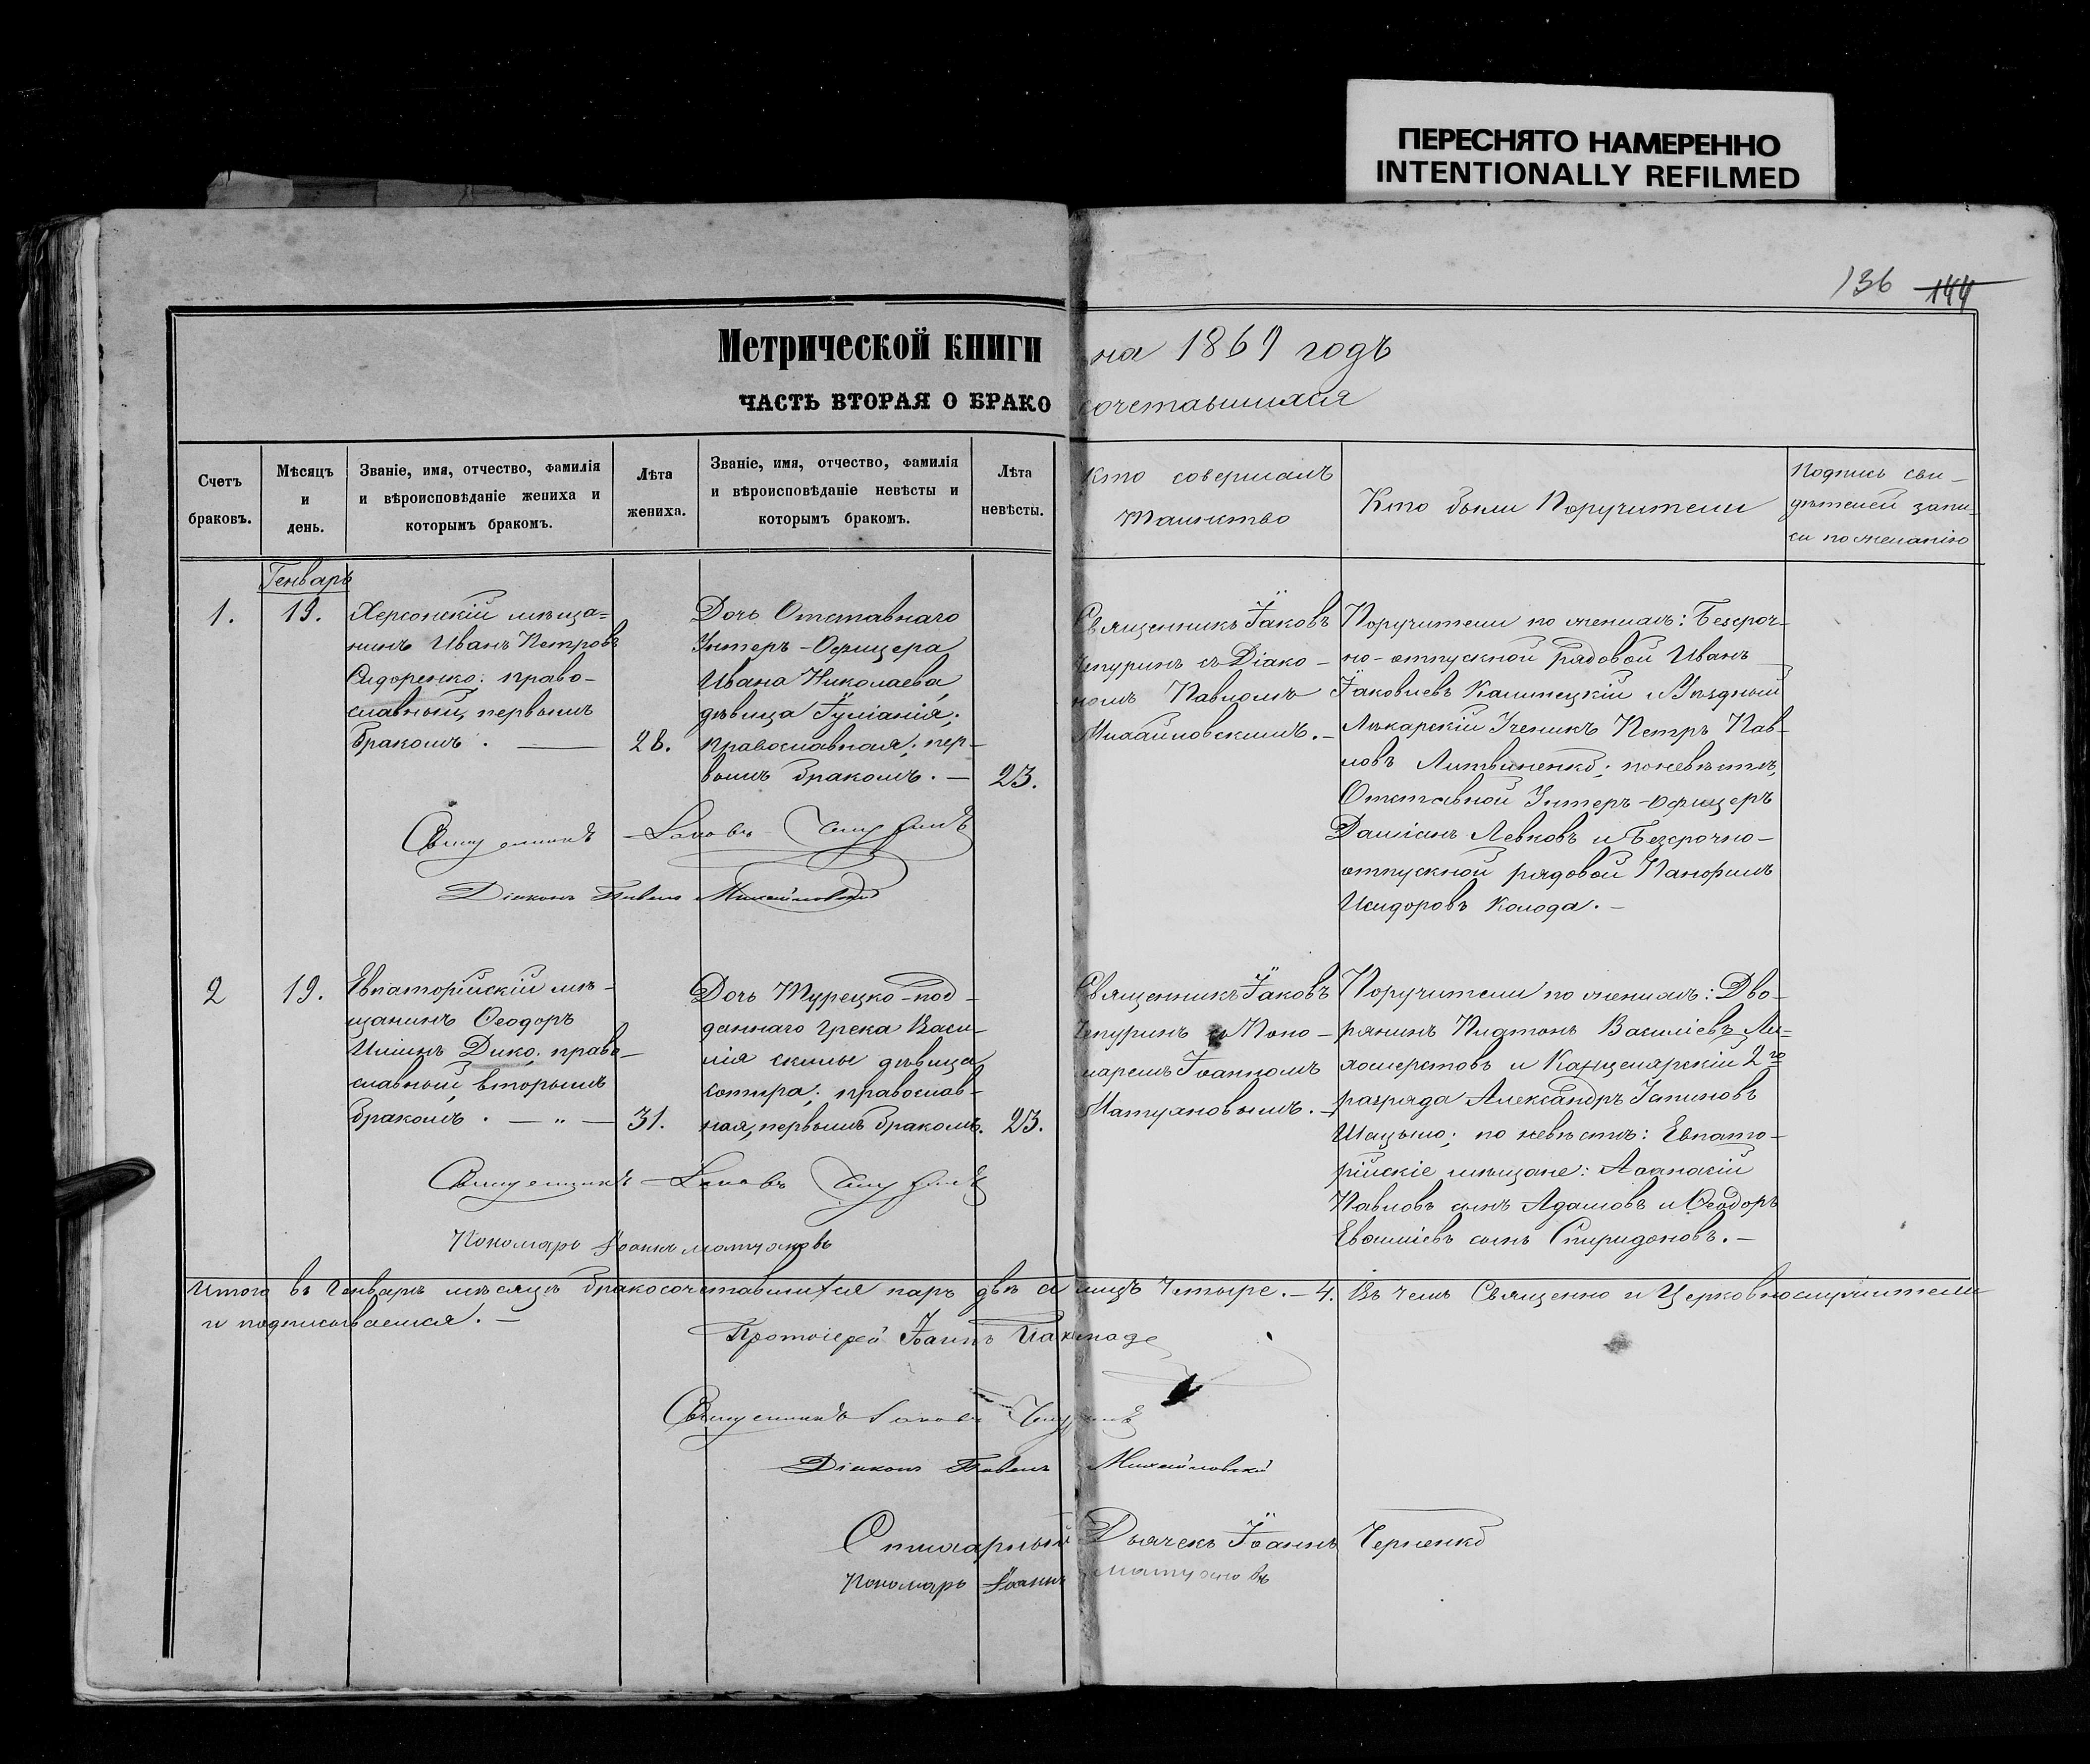 ПЕРЕСНЯТО НАМЕРЕННО
INTENTIONALLY REFILMED
136 144
Метрической книги на 1869 годъ
ЧАСТЬ ВТОРАЯ О БРАКО сочетавшихся
Счетъ браковъ.
Мѣсяцъ и день.
Званіе, имя, отчество, фамилія
и вѣроисповѣданіе жениха и
которымъ бракомъ.
Лѣта
жениха.
Званіе, имя, отчество, фамилія
и вѣроисповѣданіе невѣсты и
которымъ бракомъ.
Лѣта
невѣсты.
Кто совершалъ
Таинство
Кто были Поручители
Подпись сви-
дѣтелей запи-
си по желанію
Генварь
1.
19.
Херсонскій мѣща=
нинъ Иванъ Петровъ
Сидоренко: право-
славный, первымъ
бракомъ.
28.
Дочь Отставнаго
Унтеръ-Офицера
Ивана Николаева,
дѣвица Іуліанія;
православная; пер-
вымъ бракомъ. —
23.
Священникъ Іаковъ
Чепуринъ съ Діако-
номъ Павломъ
Михайловскимъ. —
Поручители по женихѣ: Безсроч-
но-отпускной рядовой Иванъ
Яковлевъ Калинецкій и Уѣздный
Лѣкарскій Ученикъ Петръ Пав-
ловъ Литвиненко; по невѣстѣ,
Отставной Унтеръ-Офицеръ
Даміанъ Левковъ и Безсрочно-
отпускной рядовой Панфилъ
Исидоровъ Колода. —
Священникъ Іаковъ Чепуринъ
Діаконъ Павелъ Михайловскій
2
19.
Евпаторійскій мѣ-
щанинъ Ѳеодоръ
Ильинъ Дико; право-
славный, вторымъ
бракомъ. — „ —
31.
Дочь Турецко-под-
даннаго Грека Васи-
лія дѣвица
сотира; православ-
ная, первымъ бракомъ.
23.
Священникъ Іаковъ
Чепуринъ и Поно-
маремъ Іоанномъ
Матушновымъ. —
Поручители по женихѣ: Дво-
рянинъ Платонъ Василіевъ Ли-
хошерстовъ и Канцелярскій 2го
разряда Александръ
по невѣстѣ: Евпато-
рійскіе мѣщане: Аѳанасій
Павловъ сынъ Адамовъ и Ѳеодоръ
сынъ Спиридоновъ. —
Священникъ Іаковъ Чепуринъ
Пономарь Іоаннъ
Итого въ Генварѣ мѣсяцѣ бракосочетавшихся паръ двѣ а лицъ четыре. — 4. Въ чемъ Священно и Церковнослужители
и подписываемся. —
Протоіерей Іоаннъ
Священникъ Іаковъ Чепуринъ
Діаконъ Павелъ Михайловскій
Стихарный Дьячекъ Іоаннъ Черненко
Пономарь Іоаннъ